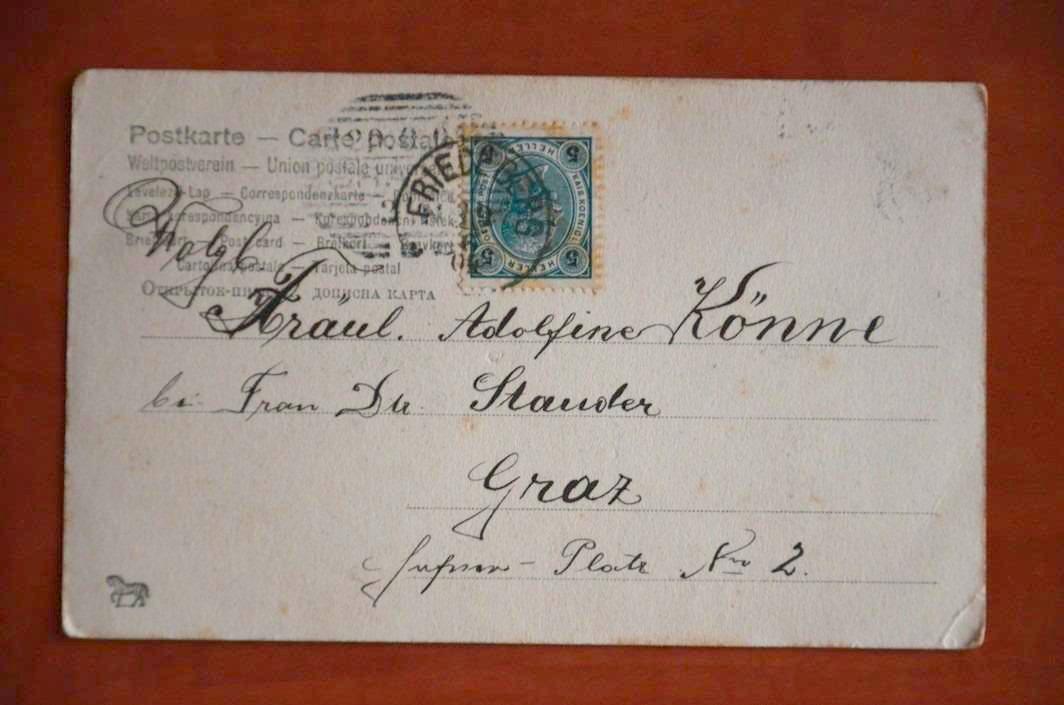 Postkarte — Carte postale
Weltpostverein — Union postale univers
Levelező-Lap — Correspondenzkarte —
correspondencyjna — Korespondenční lístek
Post card — Brefkort
Cartolina postale — Tarjeta postal
ДОПИСНА КАРТА
FRIEDBERG
5 HELLER 5
KAIS. KOENIGL.
5 HELLER 5
Fräul. Adolfine Könne
bei Frau Dr. Stauder
Graz
Platz No 2.